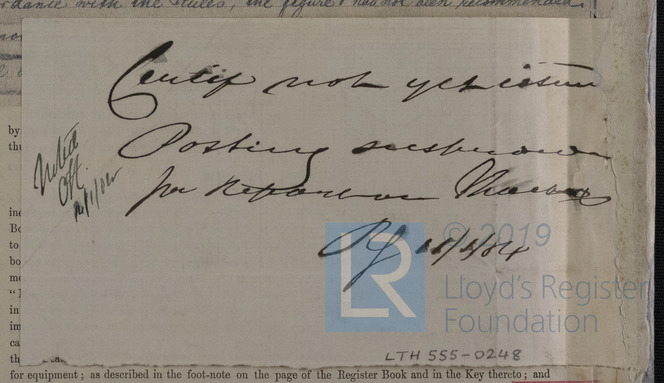 rdance with the Rules, the figure 1 has not been recommended.
Certif not yet issued
Posting suspended
for Report on Machy
11/1/84
Noted
Off.
LR
© 2019
Lloyd's Register
Foundation
LTH 555-0248
by
thu
ind
Bo
to
bo
me
in
im
ca
th
for equipment; as described in the foot-note on the page of the Register Book and in the Key thereto; and